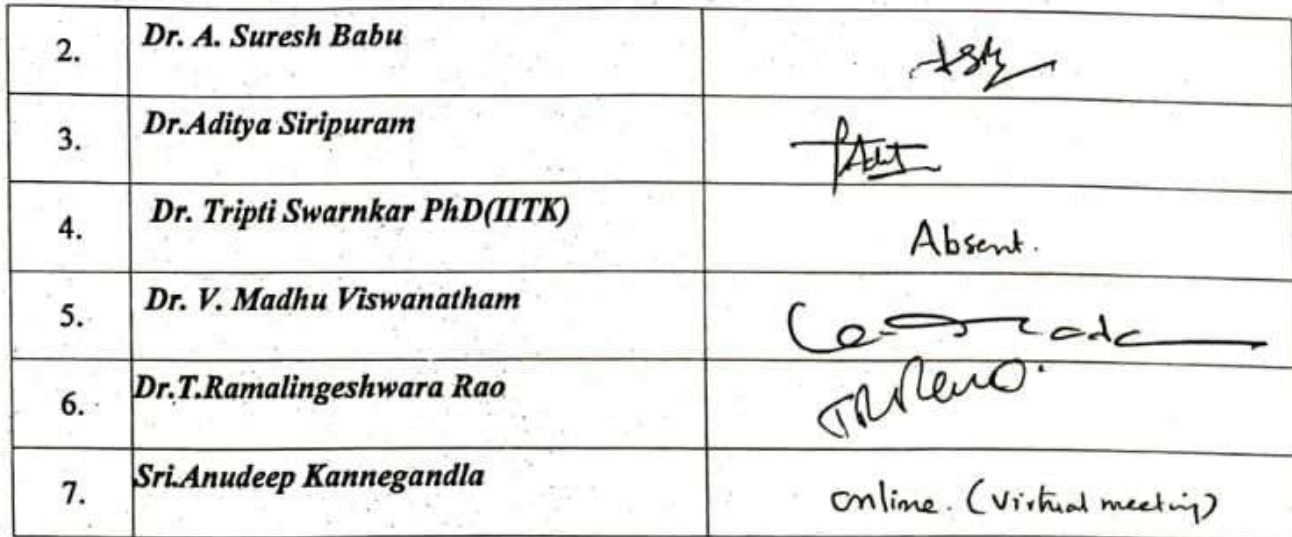 2. Dr. A. Suresh Babu
3. Dr.Aditya Siripuram
4. Dr. Tripti Swarnkar PhD(IITK) Absent.
5. Dr. V. Madhu Viswanatham
6. Dr.T.Ramalingeshwara Rao
7. Sri.Anudeep Kannegandla online. (Virtual meeting)